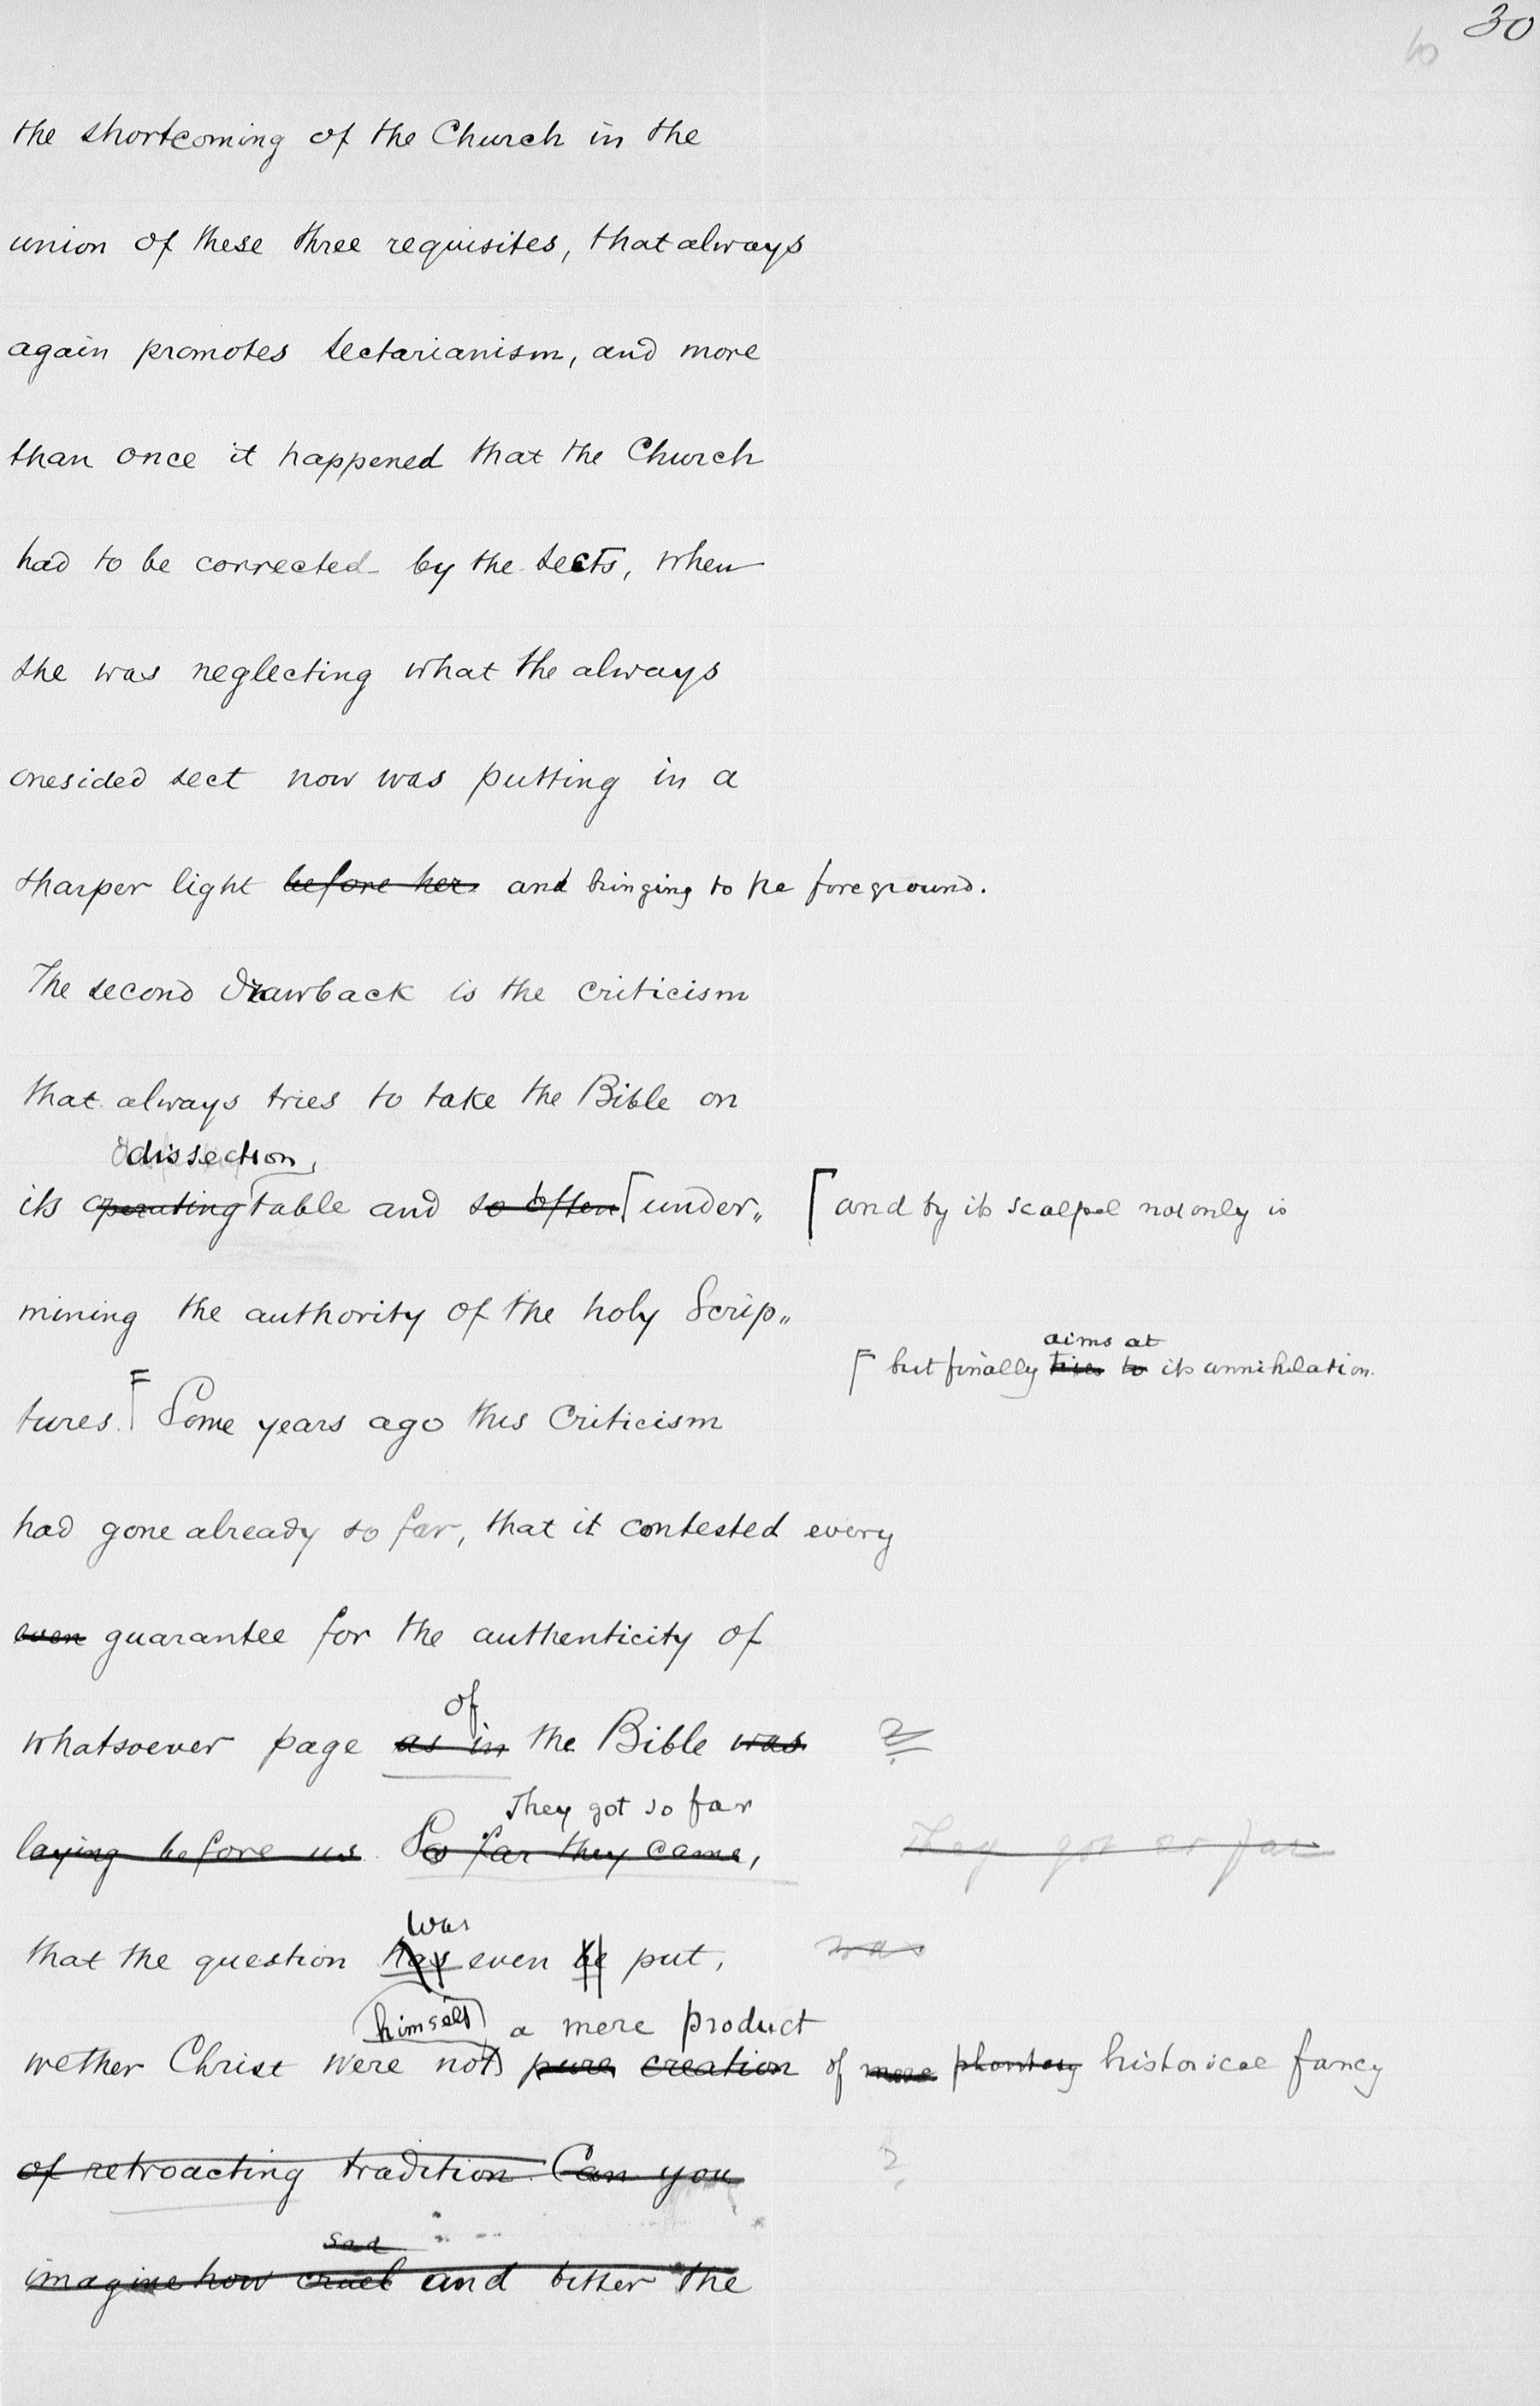 30
10
the shortcoming of the Church in the
union of these three requisites, that always
again promotes sectarianism, and more
than once it happened that the Church
had to be corrected by the sects, when
she was neglecting what the always
onesided sect now was putting in a
sharper light before her and bringing to the foreground.
The second drawback is the criticism
that always tries to take the Bible on
dissection,
its operating table and so often under„
and by its scalpel not only is
mining the authority of the holy Scrip„
aims at
but finally tries to its annihilation.
tures. Some years ago this Criticism
had gone already so far, that it contested every
even guarantee for the authenticity of
of
whatsoever page as in the Bible was ?
They got so far
laying before us. So far they came, They got so far
was
that the question has even be put, was
himself a mere product
wether Christ were not pure creation of mere phantasy historical fancy
of retroacting tradition. Can you ?
sad
imagine how cruel and bitter the